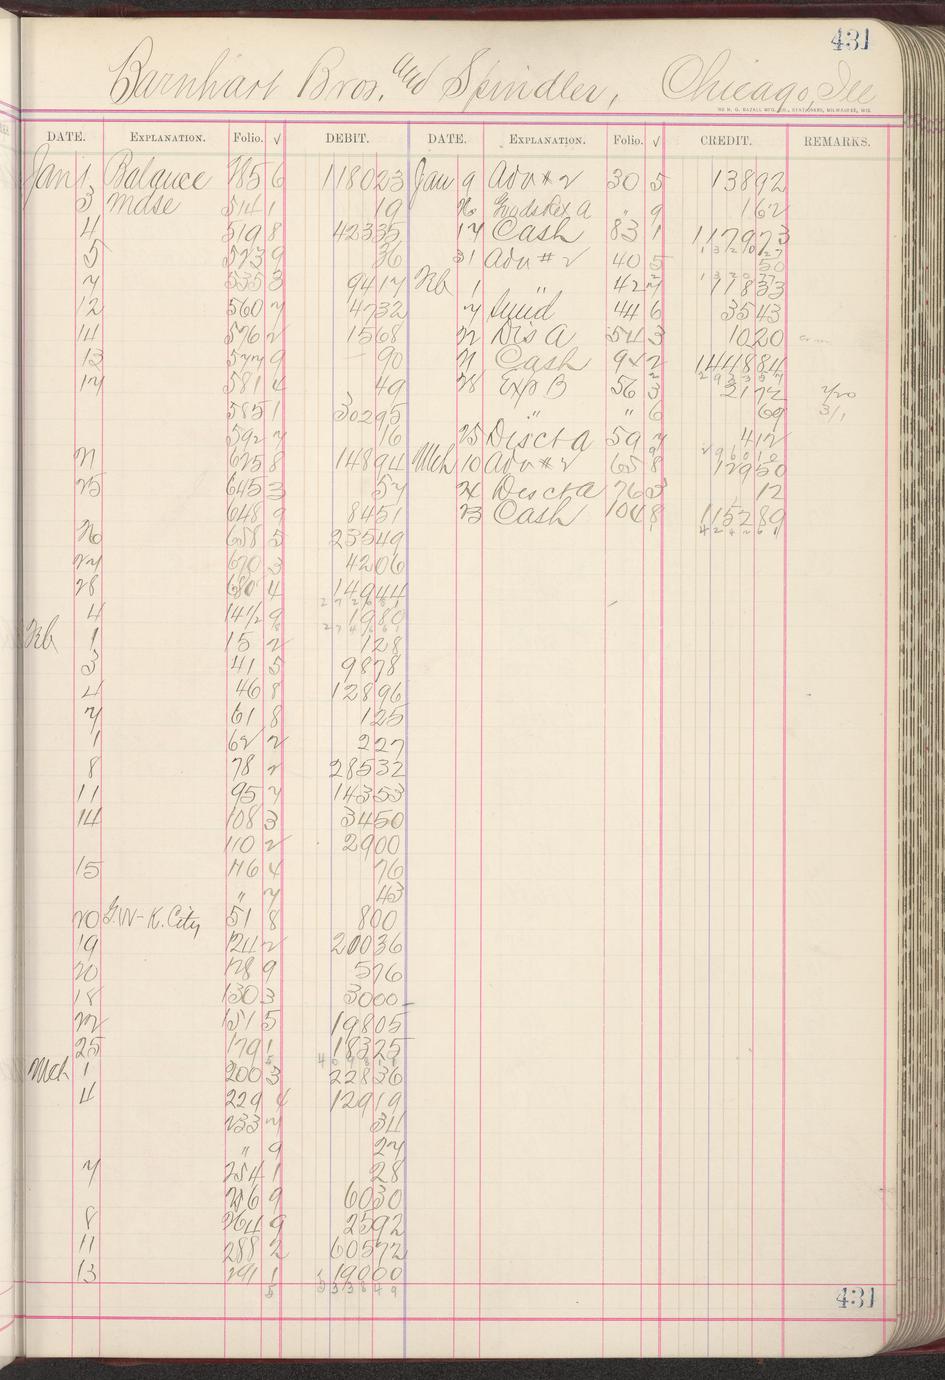 431
Barnhart Bros. and Spindler, Chicago, Ill
DATE. EXPLANATION. Folio. √ DEBIT. DATE. EXPLANATION. Folio. √ CREDIT. REMARKS.
Jan 1, Balance 785 6 118023 Jan 9 Adv #2 30 5 13892
3 Mdse 514 1 19 16 a " 9 162
4 519 8 42335 17 Cash 83 1 117973
5 523 9 36 31 Adv #2 40 5 50
7 535 3 9417 Feb 1 " 42 7 11833
12 560 7 4732 7 44 6 3543
14 576 2 1568 12 Dis A 54 3 1020
13 577 9 90 21 Cash 94 2 144884
17 581 4 49 28 Exp B 56 3 2172 2/20
585 1 30295 " " 6 69 3/1
592 7 16 25 Disct A 59 7 412
21 625 8 14894 Mch 10 Adv #2 65 8 12950
25 645 3 57 24 Disct A 76 3 12
648 9 8451 23 Cash 104 8 115289
26 658 5 23549
27 670 3 4206
28 680 4 14944
4 14 1/2 9 1980
Feb 1 15 2 128
3 41 5 9878
4 46 8 12896
7 61 8 125
1 62 2 227
8 78 2 28532
11 95 7 14353
14 108 3 3450
110 2 2900
15 116 4 76
" 7 43
20 G.W- K. City 51 8 800
19 124 2 20036
20 128 9 576
18 130 3 3000
22 151 5 19805
25 179 1 18325
Mch 1 200 3 22836
4 229 4 12919
233 7 34
" 9 27
7 254 1 28
256 9 6030
8 264 9 2592
11 288 2 60572
13 291 1 19000
533849
431